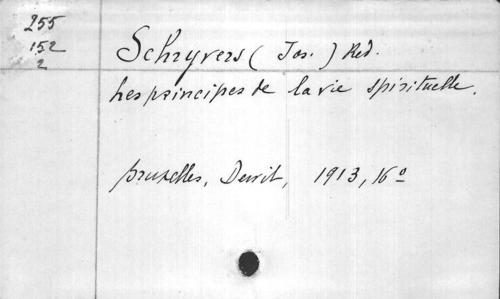 255
152
2
Schryvers ( Jos. ) Red.
Les principes de la vie spirituelle.
Bruxelles, Dewit, 1913, 16º